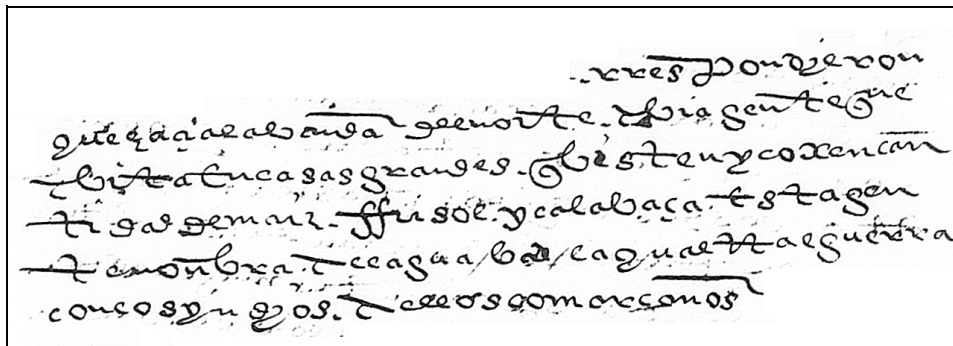 rrespondieron
que haçia la vanda del norte. abia gente que
abita en casas grandes. q bisten y coxen can
tidad de maiz. ffrisol y calabaça. esta gen
te nonbra teeagua / la qual trae guerra
con los yndios. de los comarcanos